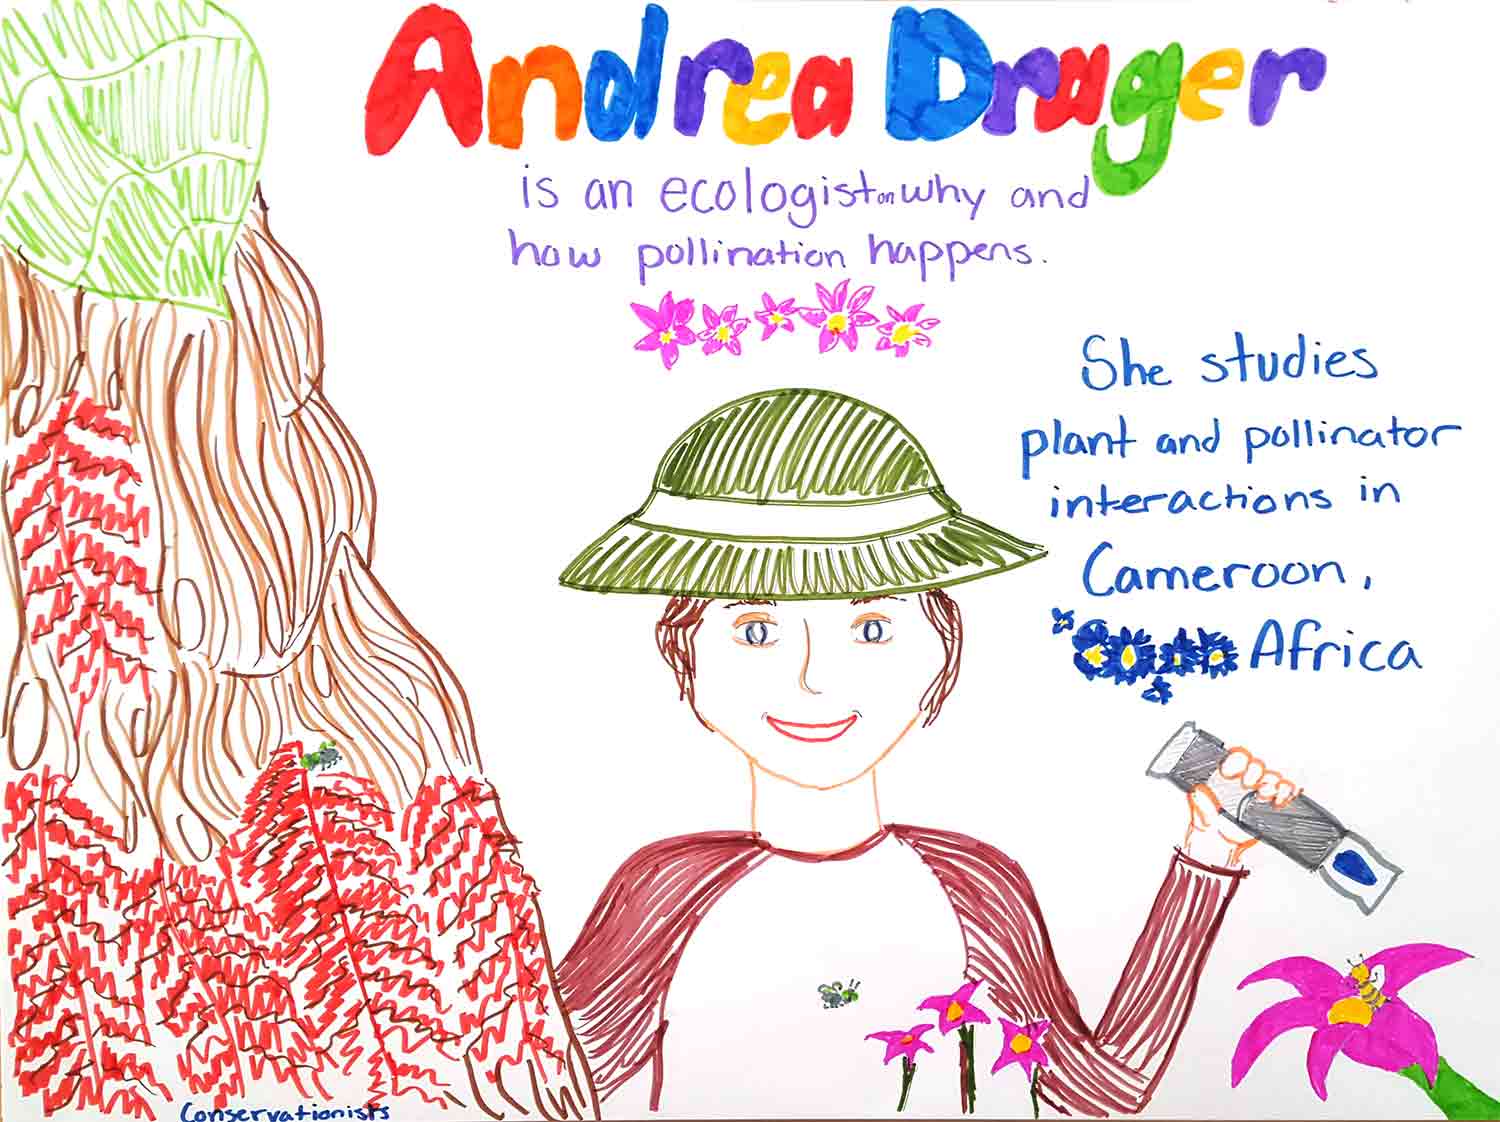 Andrea Drager
is an ecologist on why and
how pollination happens.
She studies
plant and pollinator
interactions in
Cameroon,
Africa
Conservationists